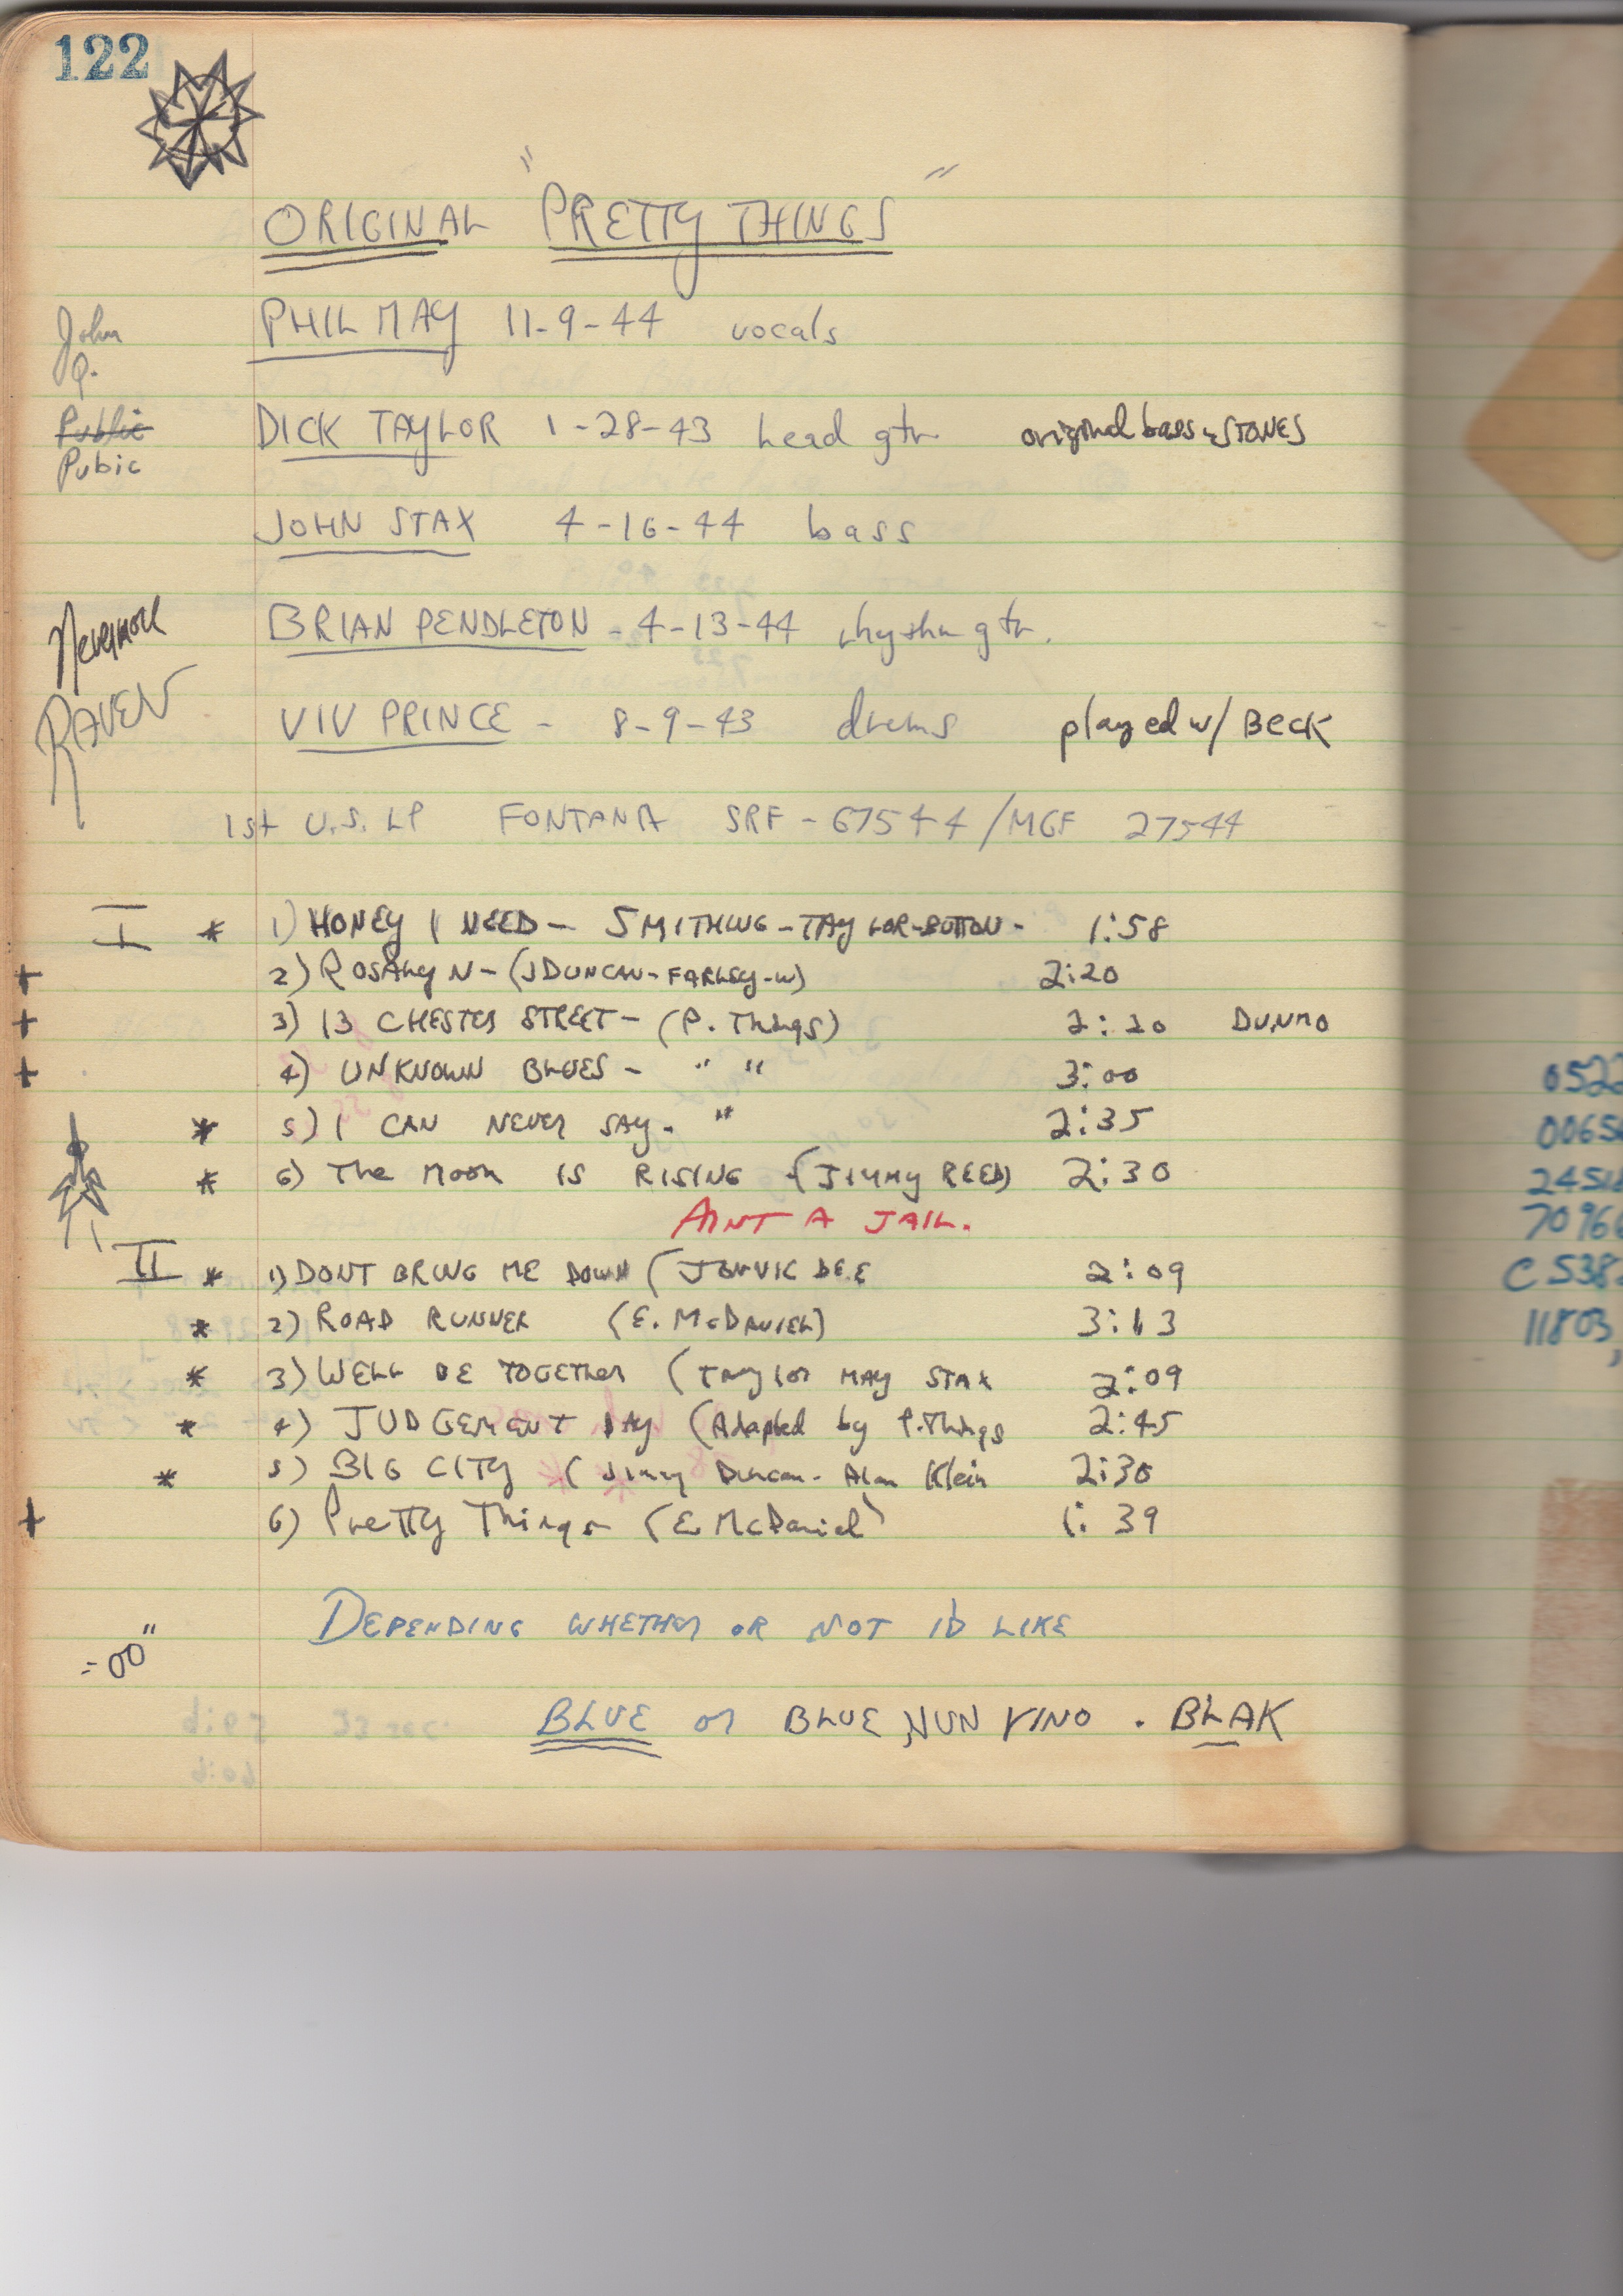 122
ORIGINAL "PRETTY THINGS"
John
Q.
PHIL MAY 11-9-44 vocals
Public
Pubic
DICK TAYLOR 1-28-43 Lead gtr original bass STONES
JOHN STAX 4-16-44 bass
Nevermore
BRIAN PENDLETON - 4-13-44 rhythm gtr.
RAVEN
VIV PRINCE - 8-9-43 drums played w/ BECK
1st U.S. LP FONTANA SRF-67544/MGF 27544
I * 1) HONEY I NEED - SMITHING-TAYLOR-BUTTON - 1:58
+ 2) ROSALYN - (JDUNCAN-FARLEY-W) 2:20
+ 3) 13 CHESTER STREET - (P. Things) 2:20 DUNNO
+ 4) UNKNOWN BLUES - " " 3:00
* 5) I CAN NEVER SAY. " 2:35
* 6) The Moon IS RISING (JIMMY REED) 2:30
AINT A JAIL.
II * 1) DONT BRING ME DOWN ( DEE 2:09
* 2) ROAD RUNNER (E. McDANIEL) 3:13
* 3) WELL BE TOGETHER (Taylor MAY STAX 2:09
* 4) JUDGEMENT DAY (Adapted by P.Things 2:45
* 5) BIG CITY (Jimmy Duncan - Alan Klein 2:30
+ 6) Pretty Things (E McDaniel) 1:39
DEPENDING WHETHER OR NOT ID LIKE
-00"
BLUE or BLUE NUN VINO . BLAK
0522
0065
245
7096
C538
11803,